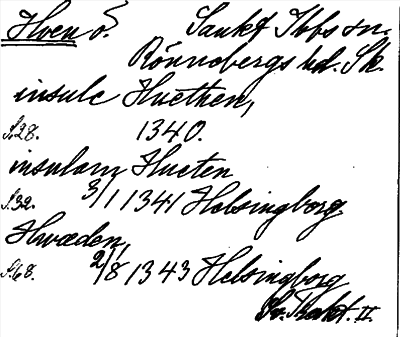 Hven ö. Sankt Ibbs sn.
Rönnebergs hd. Sk.
insule Huethen,
S.28. 1340.
insulam Hueten
S.32. 3/1 1341 Helsingborg.
Hwæden,
S.68. 2/8 1343 Helsingborg
Sv. Trakt. II.